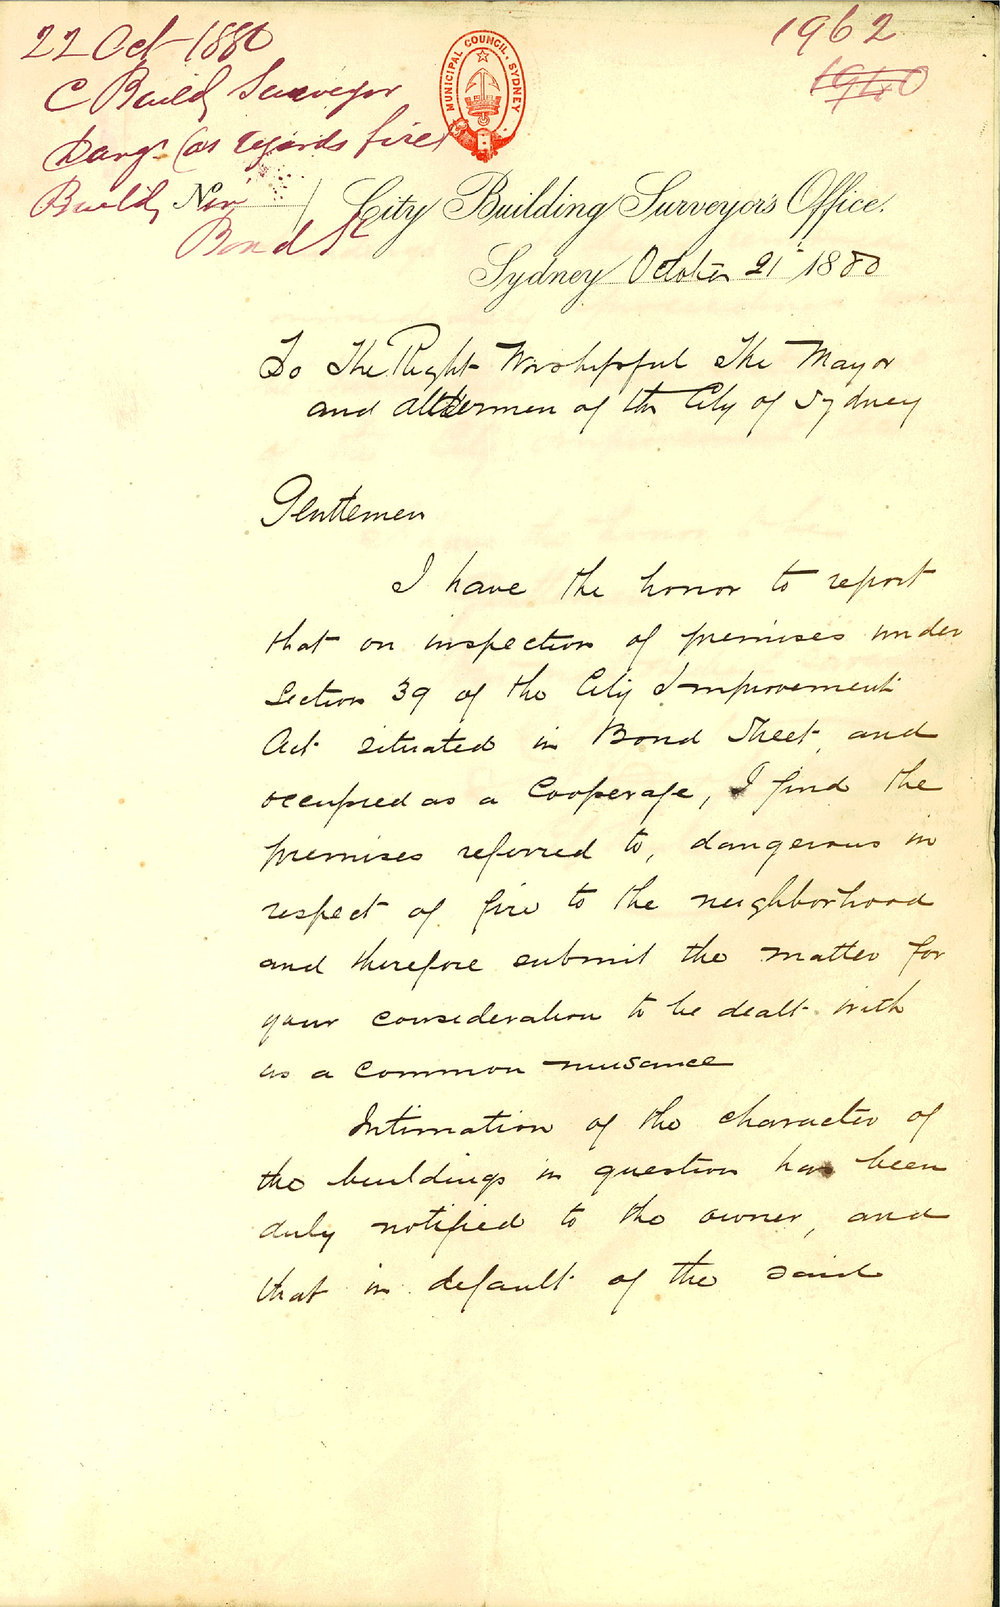 22 Oct 1880
C Build Surveyor
Dangs (as regards fire)
Build, No. in
Bond St
MUNICIPAL COUNCIL, SYDNEY
1962
1940
City Building Surveyor's Office.
Sydney October 21st 1880
To The Right Worshipful The Mayor
and Aldermen of the City of Sydney
Gentlemen
I have the honor to report
that on inspection of premises under
Section 39 of the City Improvement
Act situated in Bond Street, and
occupied as a Cooperage, I find the
premises referred to, dangerous in
respect of fire to the neighborhood
and therefore submit the matter for
your consideration to be dealt with
as a common nuisance
Intimation of the character of
the buildings in question has been
duly notified to the owner, and
that in default of the said